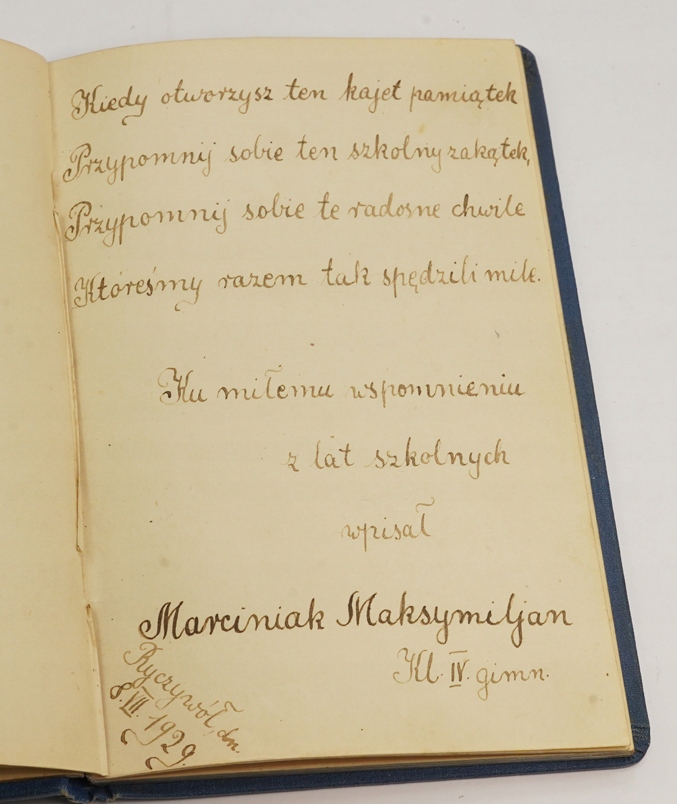 Kiedy otworzysz ten kajet pamiątek
Przypomnij sobie ten szkolny zakątek,
Przypomnij sobie te radosne chwile
Któreśmy razem tak spędzili mile.
Ku miłemu wspomnieniu
z lat szkolnych
wpisał
Marciniak Maksymiljan
Kl. IV. gimn.
Ryczywół, dn.
8. VII. 1929.